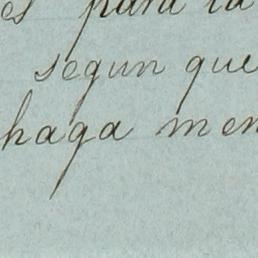 es para la
segun que
haga men